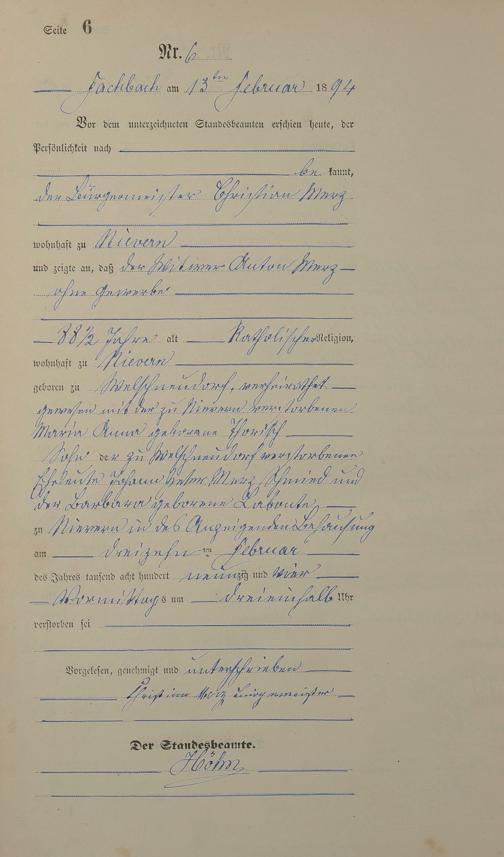 Seite 6
Nr. 6
Fachbach am 13ten Februar 1894
Vor dem unterzeichneten Standesbeamten erschien heute, der
Persönlichkeit nach
be kannt,
der Bürgermeister Christian Merz
wohnhaft zu Nievern
und zeigte an, daß der Witwer Anton Merz
ohne Gewerbe
88 1/2 Jahre alt Katholischer Religion,
wohnhaft zu Nievern
geboren zu Welschneudorf, verheirathet
gewesen mit der zu Nievern verstorbenen
Maria Anna geborene
Sohn der zu Welschneudorf verstorbenen
Eheleute Johann Peter Merz Schmied und
der Barbara geborene Labonte
zu Nievern in des Anzeigenden Behausung
am dreizehnten Februar
des Jahres tausend acht hundert neunzig und vier
Vormittags um dreieinhalb Uhr
verstorben sei
Vorgelesen, genehmigt und unterschrieben
Christian Merz Bürgermeister
Der Standesbeamte.
Höhn